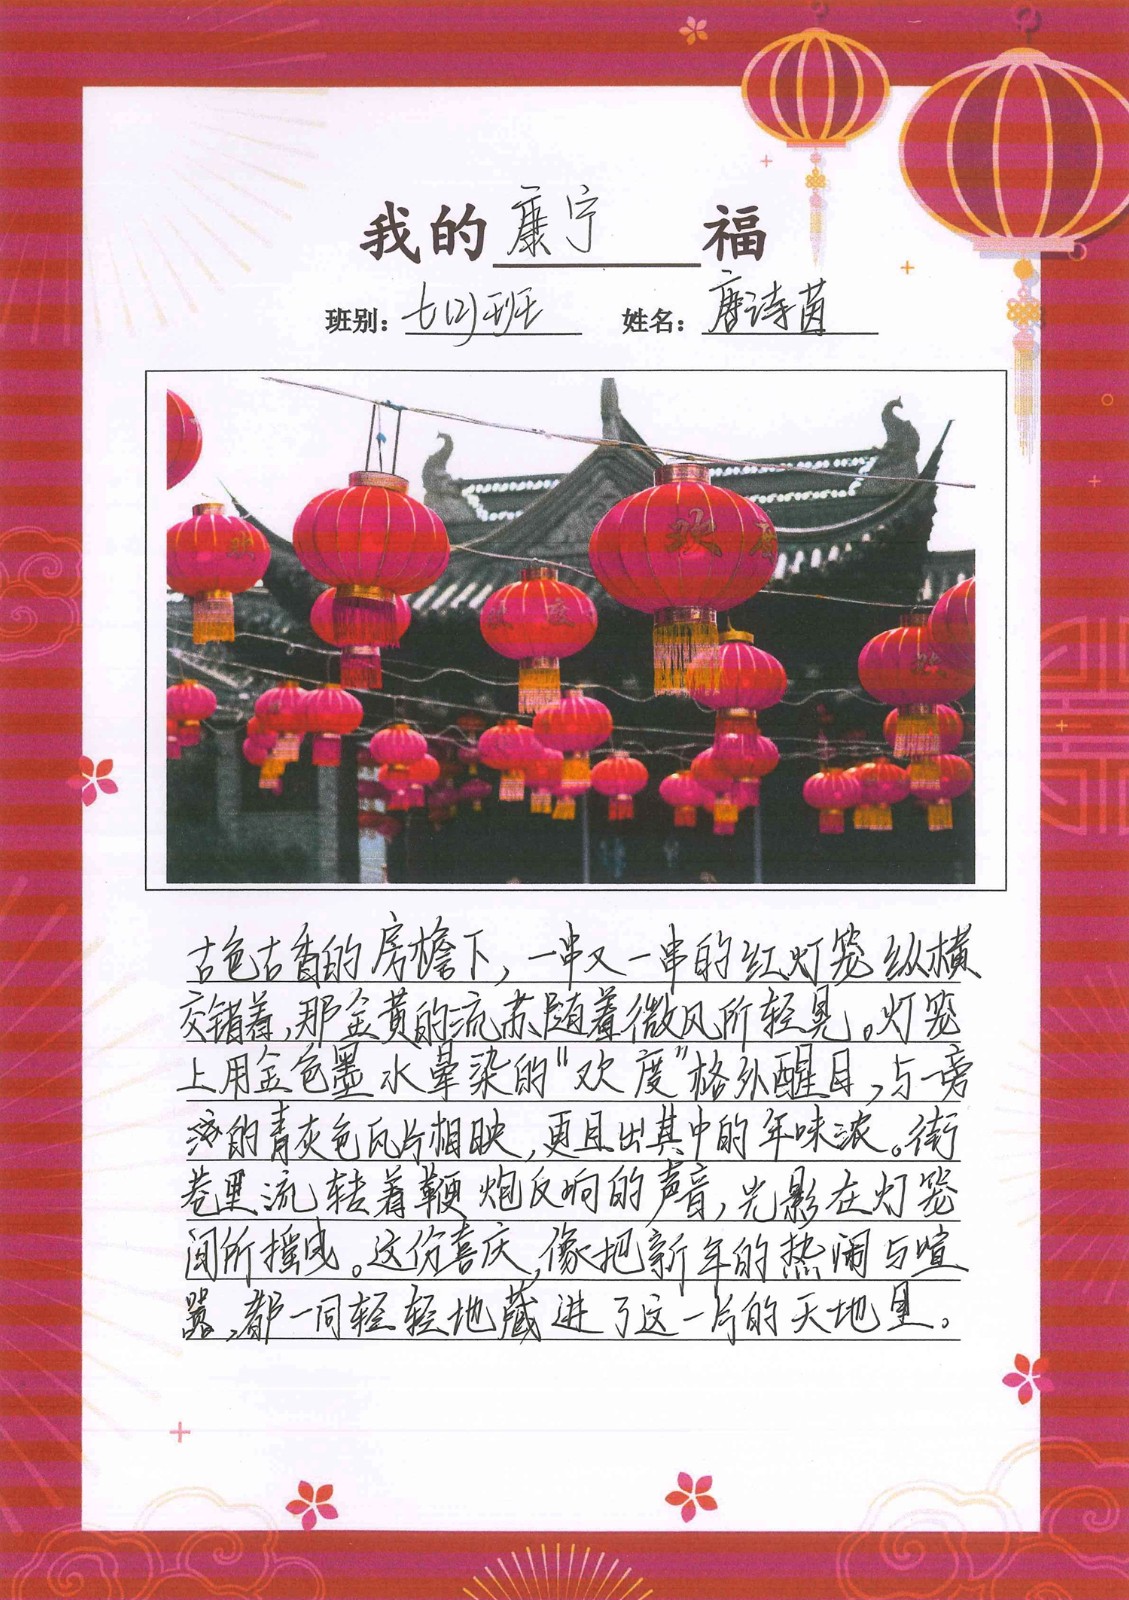 我的康宁福
班别：七(2)班 姓名：唐诗茵
欢
欢度
欢度
欢
古色古香的房檐下，一串又一串的红灯笼纵横
交错着，那金黄的流苏随着微风所轻晃。灯笼
上用金色墨水晕染的“欢度”格外醒目，与一旁
的青灰色瓦片相映，更且出其中的年味浓。街
巷里流转着鞭炮反响的声音，光影在灯笼
间所摇曳。这份喜庆，像把新年的热闹与喧
嚣，都一同轻轻地藏进了这一片的天地里。